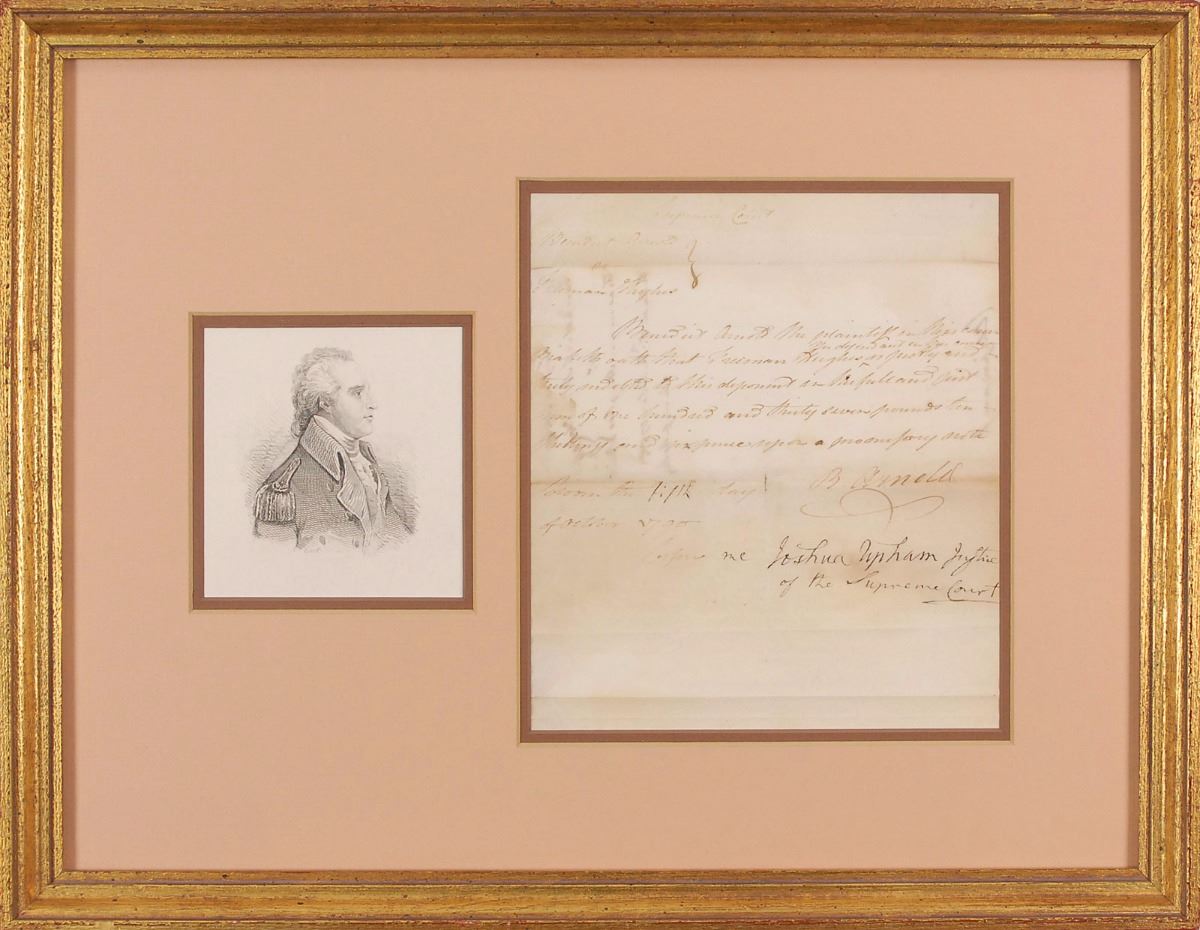 Supreme Court
Benedict Arnold
vs
Freeman Hughes
Benedict Arnold the plaintiff in this
the defendant in this
maketh oath that Freeman Hughes is justly and
truly indebted to this deponent in the full and just
sum of one hundred and thirty seven pounds ten
shillings and six pence upon a promissory note
Sworn the fifth day
B Arnold
of October 1790
before me Joshua Upham Justice
of the Supreme Court